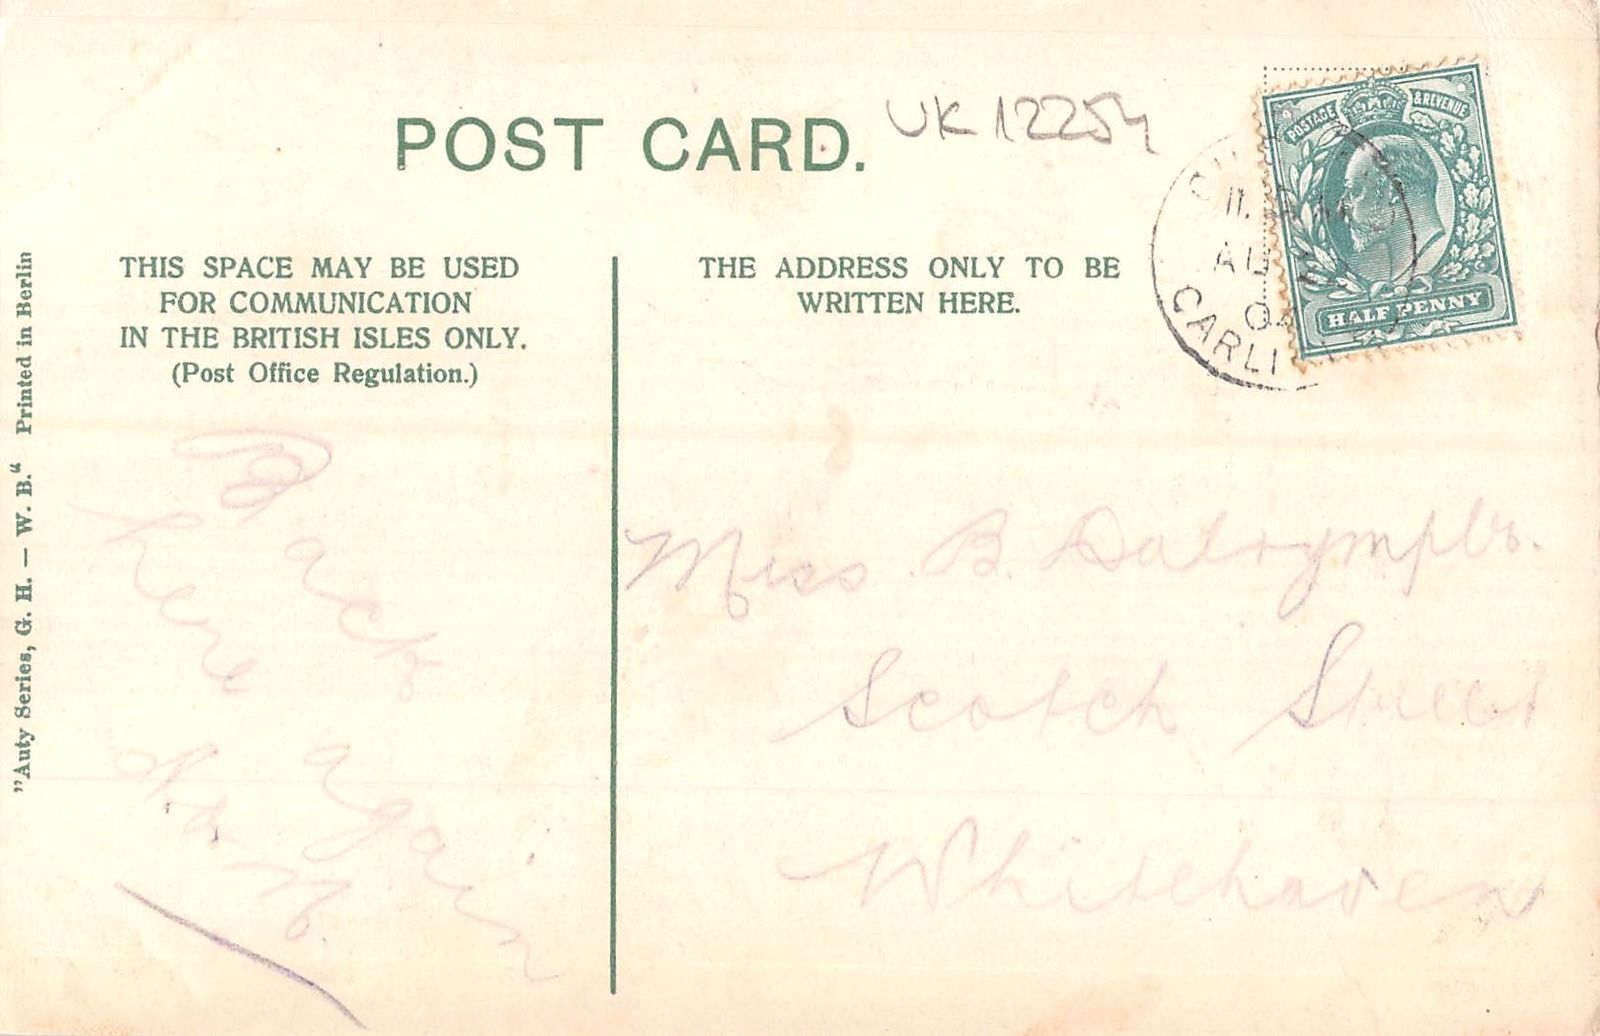 POST CARD.
UK 12254
POSTAGE & REVENUE
HALF PENNY
11.
AU
04
CARLI
THIS SPACE MAY BE USED
FOR COMMUNICATION
IN THE BRITISH ISLES ONLY.
(Post Office Regulation.)
THE ADDRESS ONLY TO BE
WRITTEN HERE.
"Auty Series, G. H. — W. B.“ Printed in Berlin
Back
here again
Miss B. Dalrymple.
Scotch Street
Whitehaven